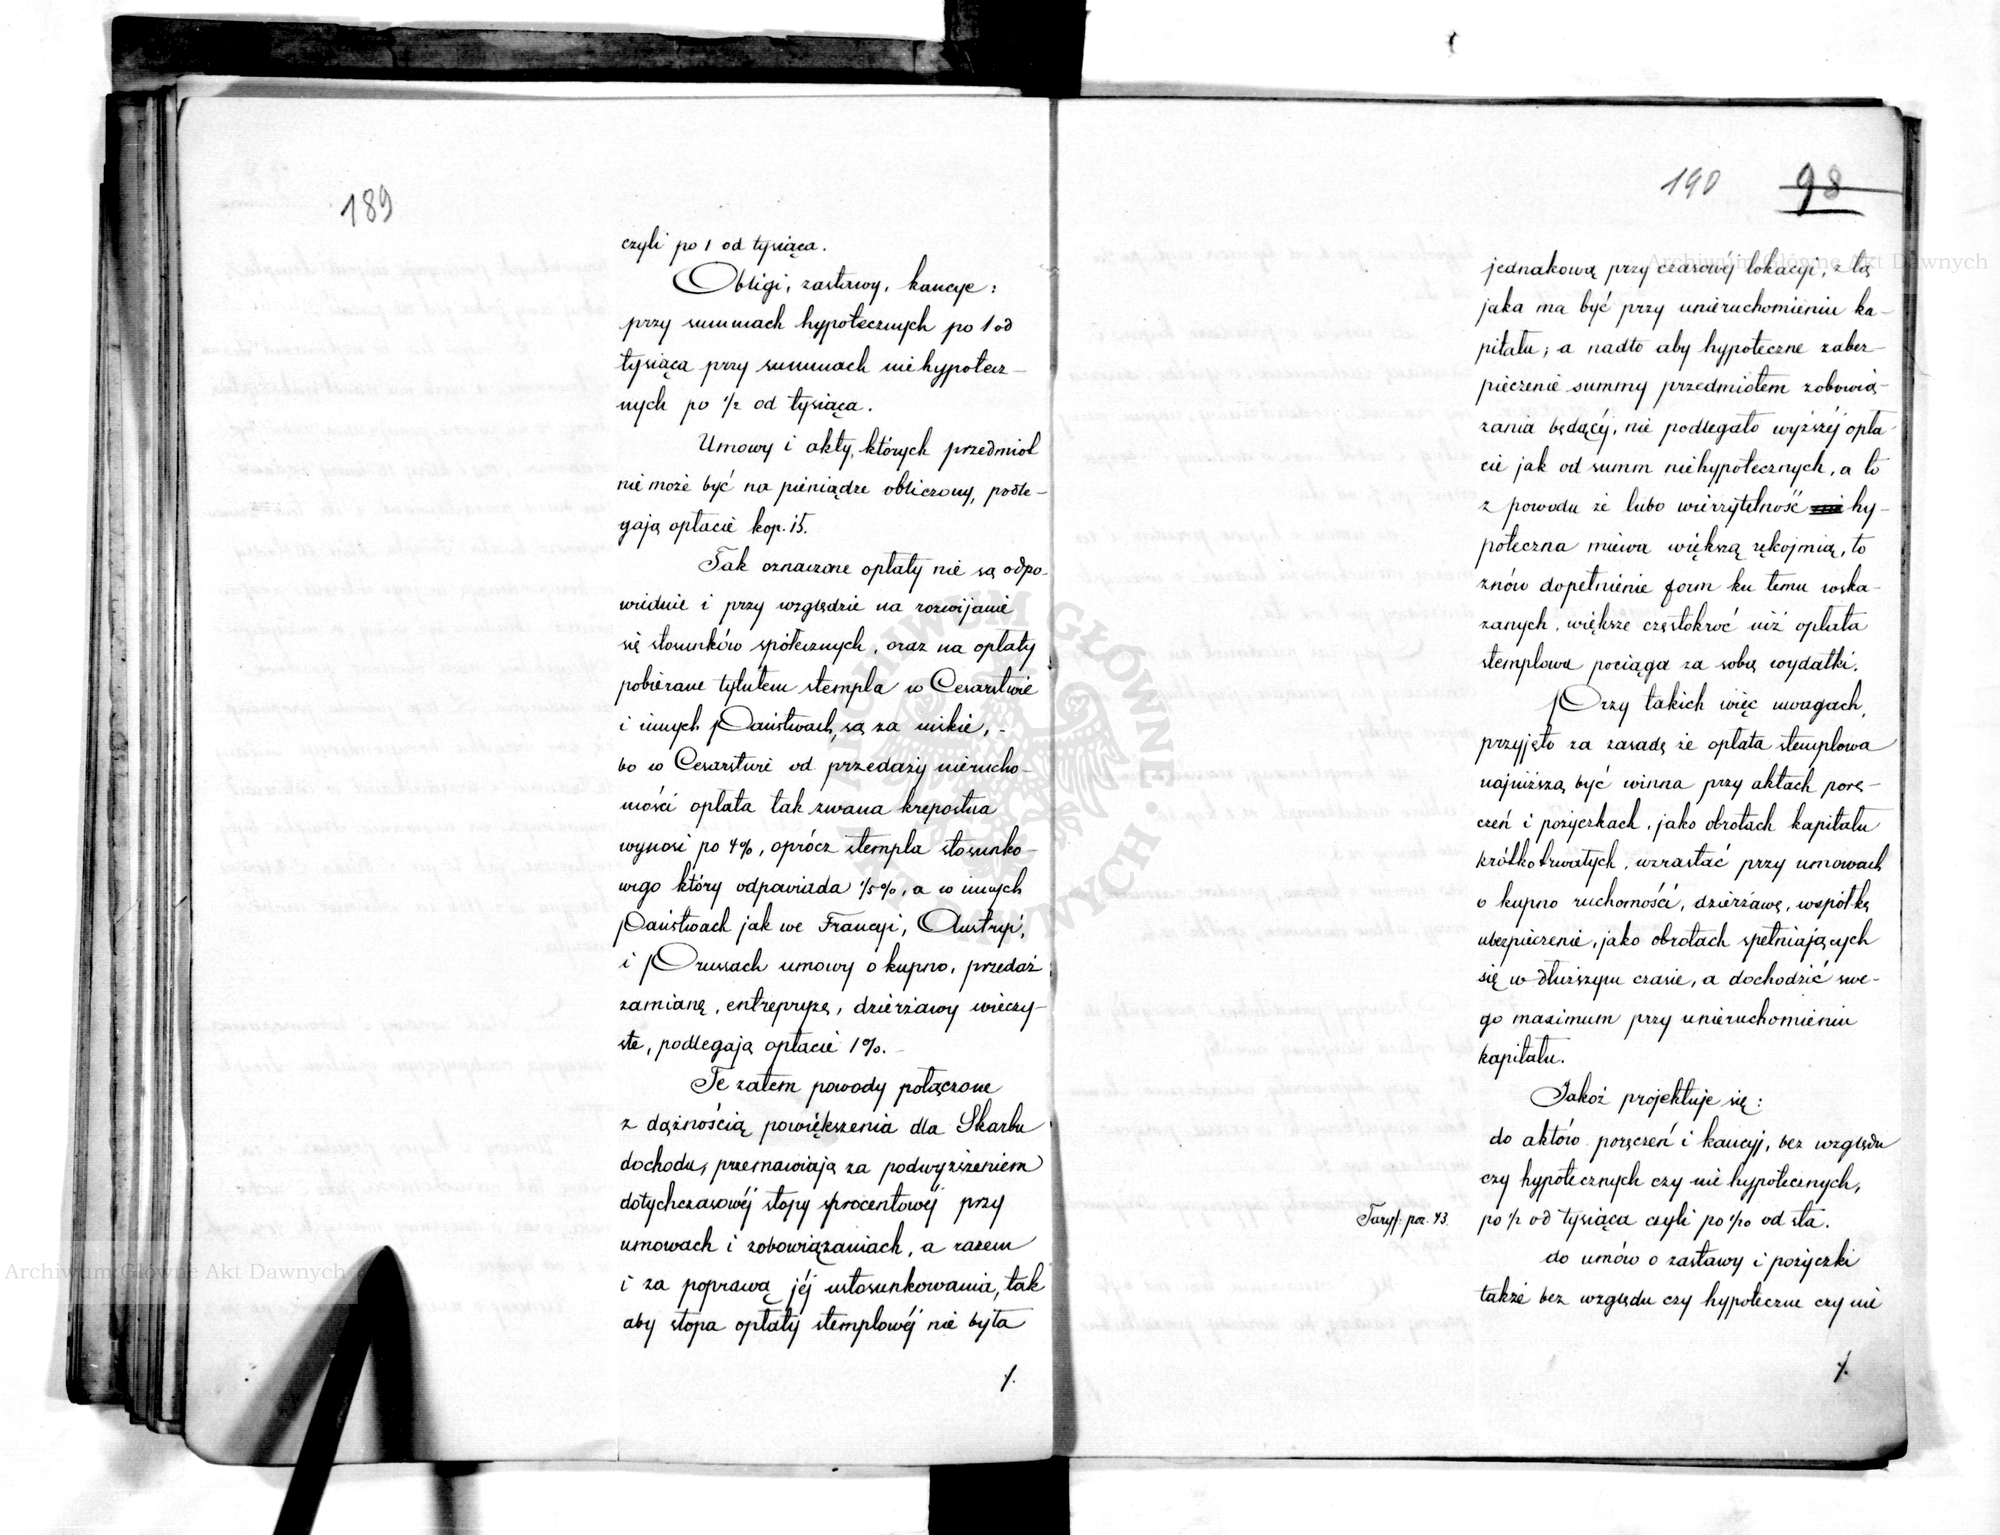 189
czyli po 1 od tysiąca.
Obligi, zastawy, kaucye:
przy summach hypotecznych po 1 od
tysiąca przy summach niehypotecz-
nych po 1/2 od tysiąca.
Umowy i akty, których przedmiot
nie może być na pieniądze obliczony, podle-
gają opłacie kop. 15.
Tak oznaczone opłaty nie są odpo-
wiednie i przy względzie na rozwijanie
się stosunków spółecznych, oraz na opłaty
pobierane tytułem stempla w Cesarstwie
i innych Państwach, są za niskie, -
bo w Cesarstwie od przedaży nierucho-
mości opłata tak zwana krepostna
wynosi po 4%, oprócz stempla stosunko-
wego który odpowiada 1/5%, a w innych
Państwach jak we Francyi, Austryi,
i Prusach umowy o kupno, przedaż
zamianę, entrepryzę, dzierżawy wieczy-
ste, podlegają opłacie 1%. -
Te zatem powody połączone
z dążnością powiększenia dla Skarbu
dochodu, przemawiają za podwyższeniem
dotychczasowéj stopy procentowéj przy
umowach i zobowiązaniach, a razem
i za poprawą jéj ustosunkowania, tak
aby stopa opłaty stemplowéj nie była
./.
190 98
jednakową przy czasowéj lokacyi, z tą
jaka ma być przy unieruchomieniu ka-
pitału; a nadto aby hypoteczne zabez-
pieczenie summy przedmiotem zobowią-
zania będącéj, nie podlegało wyższéj opła-
cie jak od summ niehypotecznych, a to
z powodu że lubo wierzytelność hy-
poteczna miewa większą rękojmią, to
znów dopełnienie form ku temu wska-
zanych, większe częstokroć niż opłata
stemplowa pociąga za sobą wydatki.
Przy takich więc uwagach,
przyjęto za zasadę że opłata stemplowa
najniższą być winna przy aktach porę-
czeń i pożyczkach, jako obrotach kapitału
krótkotrwałych, wzrastać przy umowach
o kupno ruchomości, dzierżawę, wspótkę
ubezpieczenie, jako obrotach spełniających
się w dłuższym czasie, a dochodzić swe-
go maximum przy unieruchomieniu
kapitału.
Jakoż projektuje się:
do aktów poręczeń i kaucyj, bez względu
czy hypotecznych czy nie hypotecznych,
Taryf. poz. 43. po 1/2 od tysiąca czyli po 1/20 od sta.
do umów o zastawy i pożyczki
także bez względu czy hypoteczne czy nie
./.
Archiwum Główne Akt Dawnych
Archiwum Główne Akt Dawnych
ARCHIWUM GŁÓWNE AKT DAWNYCH